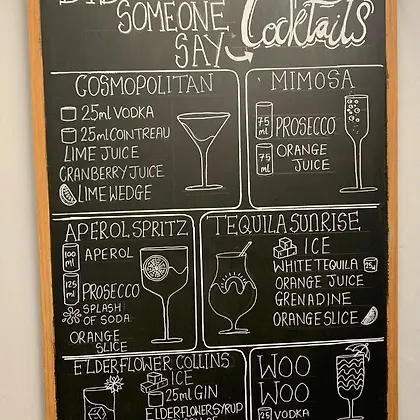 SOMEONE
SAY
Cocktails
COSMOPOLITAN
25ml VODKA
25ml COINTREAU
LIME JUICE
CRANBERRY JUICE
LIME WEDGE
MIMOSA
75 ml PROSECCO
75 ml ORANGE
JUICE
APEROL SPRITZ
100 ml APEROL
125 ml PROSECCO
SPLASH
OF SODA
ORANGE
SLICE
TEQUILA SUNRISE
ICE
WHITE TEQUILA
ORANGE JUICE
GRENADINE
ORANGE SLICE
ELDERFLOWER COLLINS
ICE
25ml GIN
ELDERFLOWER SYRUP
WOO
WOO
25 VODKA